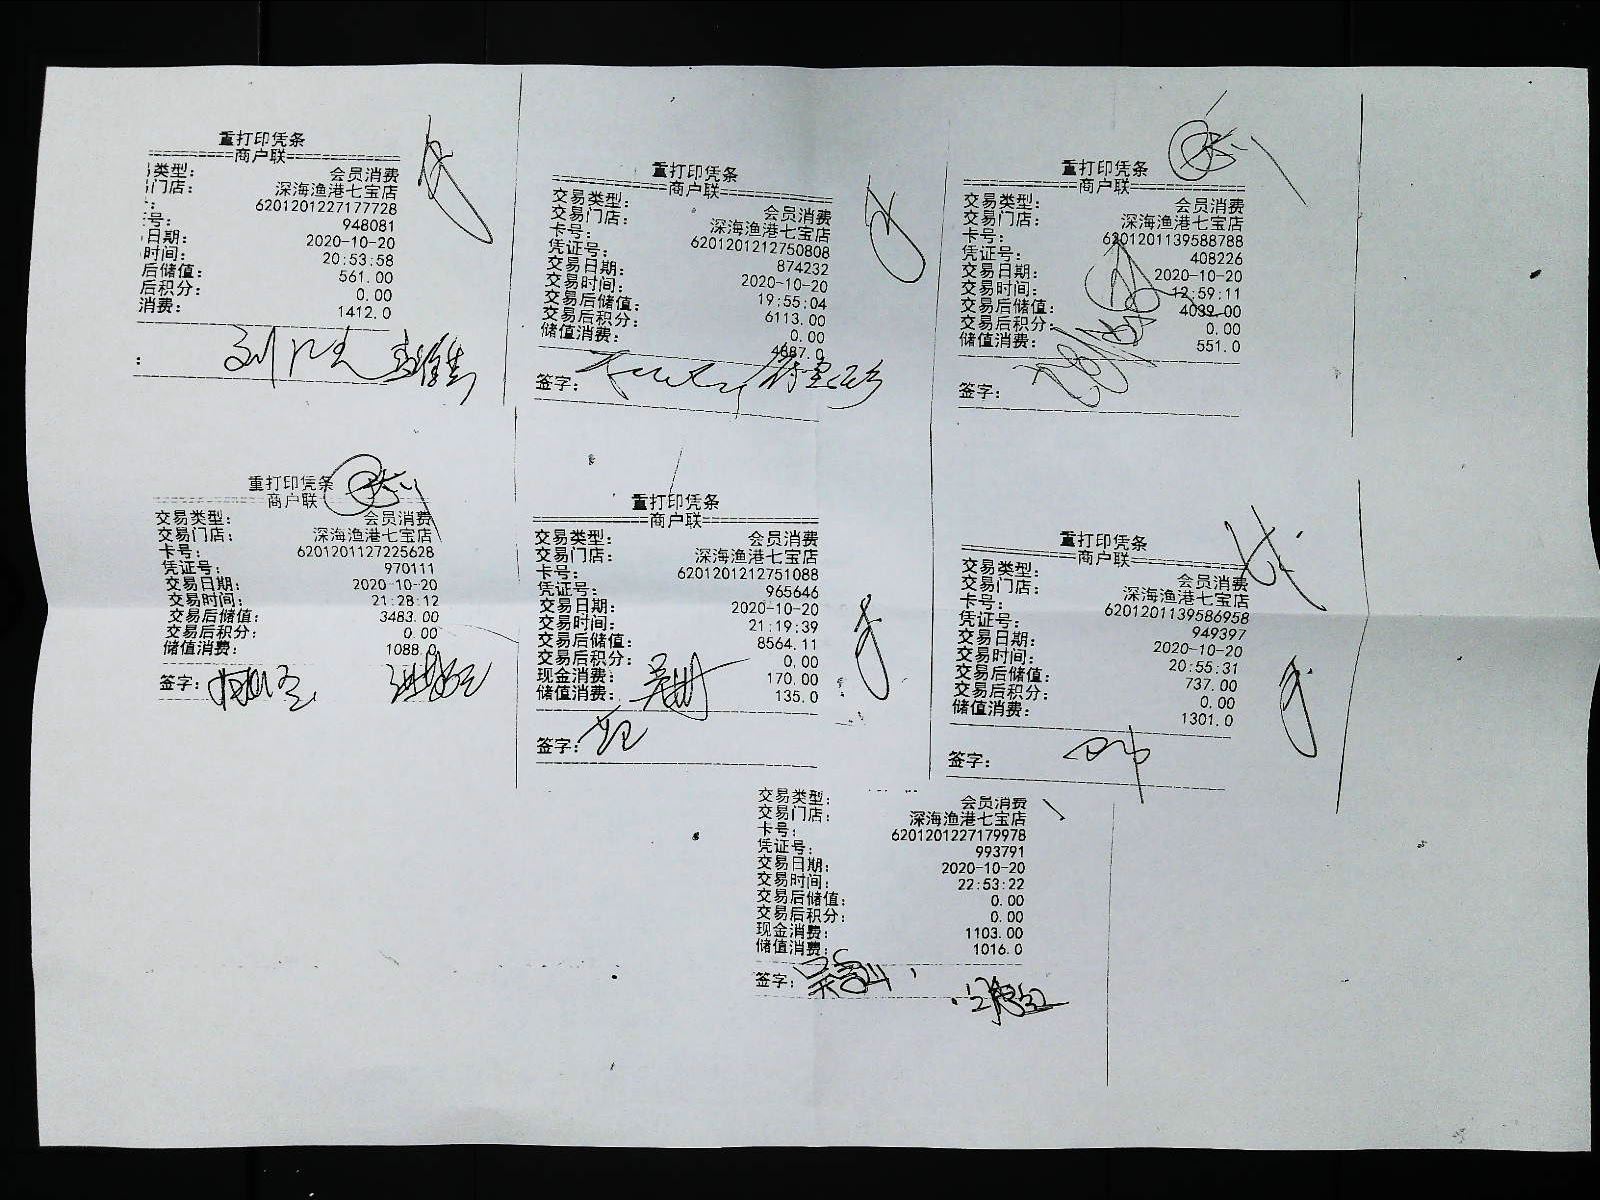 重打印凭条
商户联
类型： 会员消费
门店： 深海渔港七宝店
： 6201201227177728
号： 948081
日期： 2020-10-20
时间： 20:53:58
后储值： 561.00
后积分： 0.00
消费： 1412.0
：
重打印凭条
商户联
交易类型： 会员消费
交易门店： 深海渔港七宝店
卡号： 6201201212750808
凭证号： 874232
交易日期： 2020-10-20
交易时间： 19:55:04
交易后储值： 6113.00
交易后积分： 0.00
储值消费： 4887.0
签字：
重打印凭条
商户联
交易类型： 会员消费
交易门店： 深海渔港七宝店
卡号： 6201201139588788
凭证号： 408226
交易日期： 2020-10-20
交易时间： 12:59:11
交易后储值： 4039.00
交易后积分： 0.00
储值消费： 551.0
签字：
重打印凭条
商户联
交易类型： 会员消费
交易门店： 深海渔港七宝店
卡号： 6201201127225628
凭证号： 970111
交易日期： 2020-10-20
交易时间： 21:28:12
交易后储值： 3483.00
交易后积分： 0.00
储值消费： 1088.0
签字：
重打印凭条
商户联
交易类型： 会员消费
交易门店： 深海渔港七宝店
卡号： 6201201212751088
凭证号： 965646
交易日期： 2020-10-20
交易时间： 21:19:39
交易后储值： 8564.11
交易后积分： 0.00
现金消费： 170.00
储值消费： 135.0
签字：
重打印凭条
商户联
交易类型： 会员消费
交易门店： 深海渔港七宝店
卡号： 6201201139586958
凭证号： 949397
交易日期： 2020-10-20
交易时间： 20:55:31
交易后储值： 737.00
交易后积分： 0.00
储值消费： 1301.0
签字：
交易类型： 会员消费
交易门店： 深海渔港七宝店
卡号： 6201201227179978
凭证号： 993791
交易日期： 2020-10-20
交易时间： 22:53:22
交易后储值： 0.00
交易后积分： 0.00
现金消费： 1103.00
储值消费： 1016.0
签字：